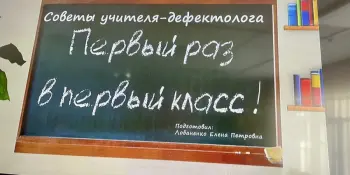 Советы учителя-дефектолога
Первый раз
в первый класс!
Подготовил:
Лобаненко Елена Петровна